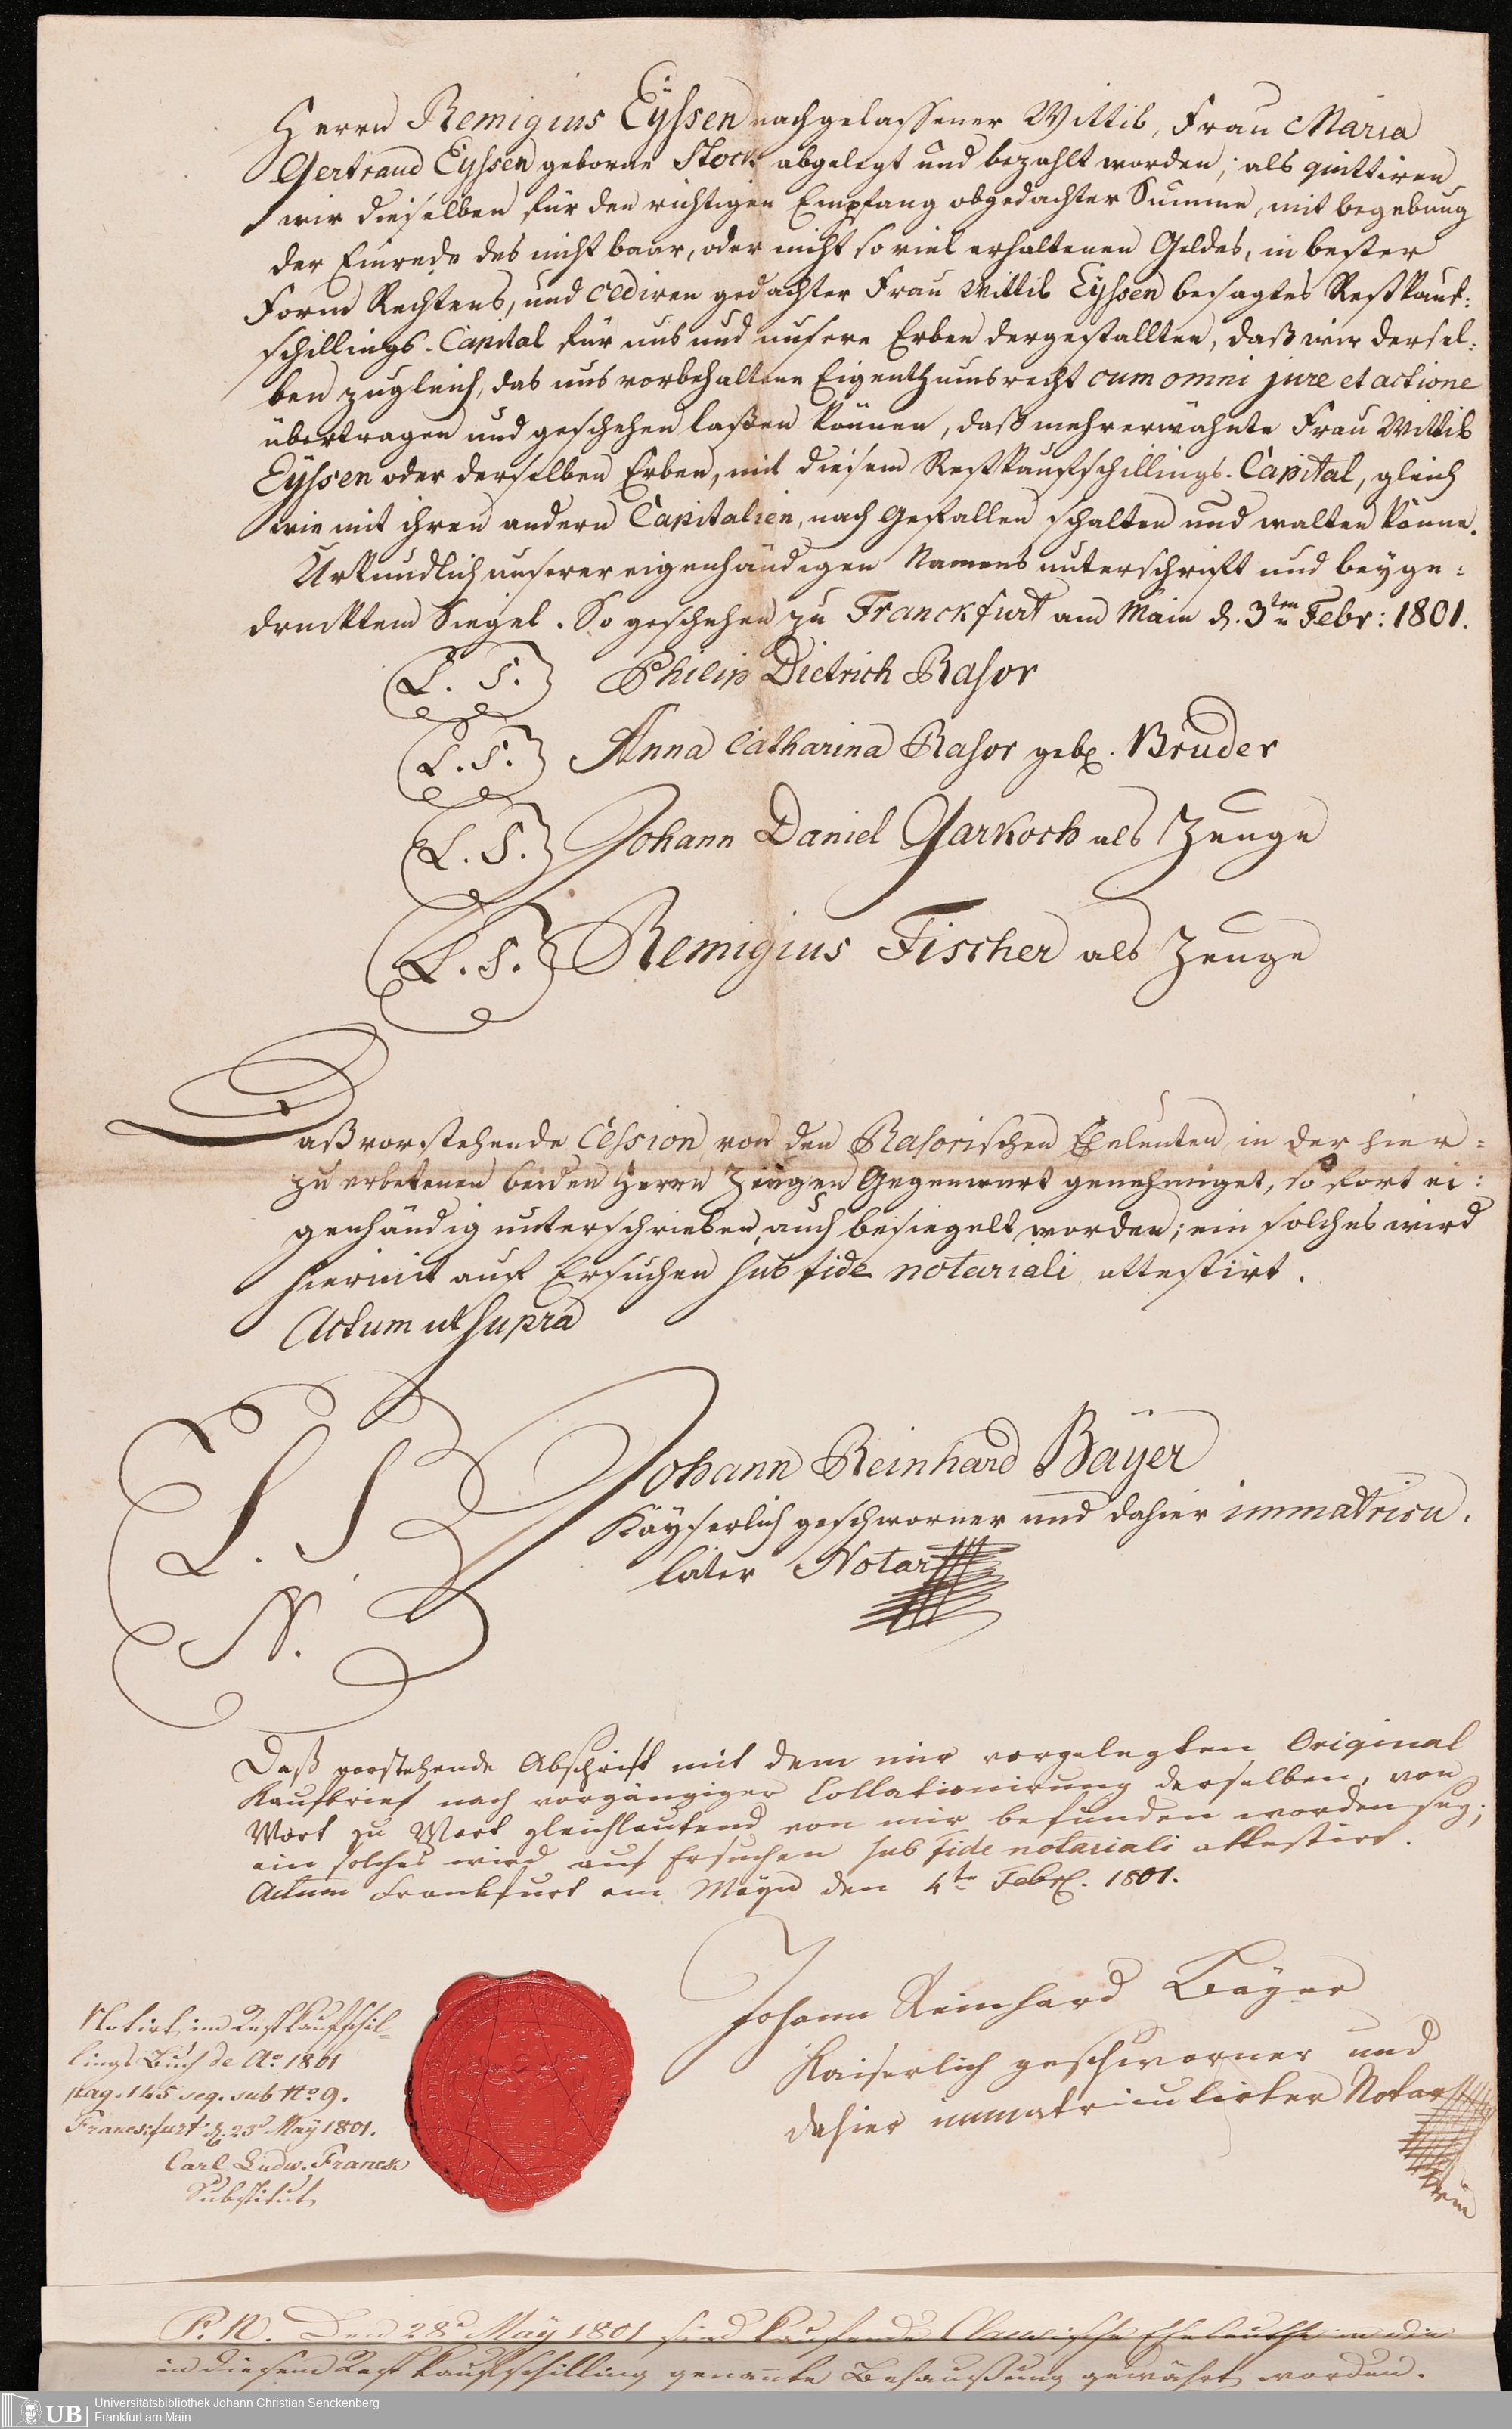 Herrn Remigius Eyßen nachgelassener Wittib, Frau Maria
Gertraud Eyßen geborne Stock abgelegt und bezahlt worden; als quittiren
wir dieselben für den richtigen Empfang obgedachter Summe, mit begebung
der Einrede des nicht baar, oder nicht so viel erhaltenen Geldes, in bester
Form Rechtens, und cediren gedachter Frau Wittib Eyßen besagtes Restkauf=
schillings-Capital für uns und unsere Erben dergestallten, daß wir dersel=
ben zugleich, das uns vorbehaltene Eigenthumsrecht cum omni jure et actione
übertragen und geschehen laßen können, daß mehrerwähnte Frau Wittib
Eyßen oder derselben Erben, mit diesem Restkaufschillings-Capital, gleich
wie mit ihren andern Capitalien, nach Gefallen schalten und walten könne.
Urkundlich unserer eigenhändigen Namens unterschrift und beyge=
drucktem Siegel. So geschehen zu Franckfurt am Main d. 3ten Febr: 1801.
L. S. Philip Dietrich Rasor
L. S. Anna Catharina Rasor geb. Bruder
L. S. Johann Daniel Garkoch als Zeuge
L. S. Remigius Fischer als Zeuge
Daß vorstehende Cession von den Rasorischen Eheleuten in der hier=
zu erbetenen beiden Herrn Zeugen Gegenwart genehmiget, so fort ei=
genhändig unterschrieben, auch besiegelt worden; ein solches wird
hiermit auf Ersuchen sub fide notariali attestirt.
Actum ut supra
L. S. Johann Reinhard Bäyer
N. Kayserlich geschworner und dahier immatricu.
lirter Notar
Daß vorstehende Abschrift mit dem mir vorgelegten Original
Kaufbrief nach vorgängiger Collationirung derselben, von
Wort zu Wort gleichlautend von mir befunden worden sey;
ein solches wird auf Ersuchen sub fide notariali attestirt.
Actum Frankfurt am Mayn den 4ten Febr. 1801.
Johann Reinhard Bäyer
Kaiserlich geschworner und
dahier immatriculirter Notar
Notirt im Restkaufschil=
lings Buch de Ao. 1801
pag. 145 seq. sub No. 9.
Francfurt d. 23. May 1801.
Carl Ludw. Franck
Substitut
P. N. Den 28. May 1801 sind kaufende Eheleuthe in die
in diesem Rest kaufschilling genannte Behaußung gewährt worden.
UB
Universitätsbibliothek Johann Christian Senckenberg
Frankfurt am Main